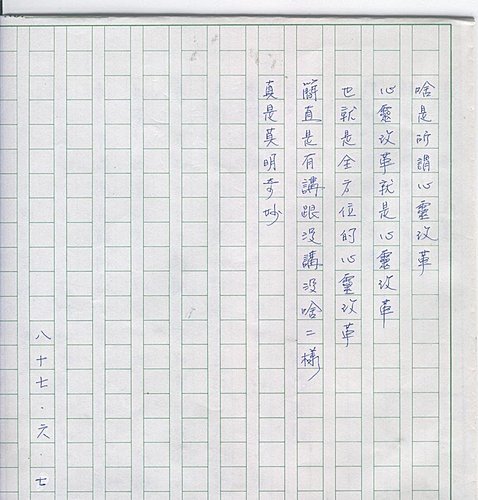 啥是所謂心靈改革
心靈改革就是心靈改革
也就是全方位的心靈改革
簡直是有講跟没講没啥二樣
真是莫明奇妙
八十七.六.七